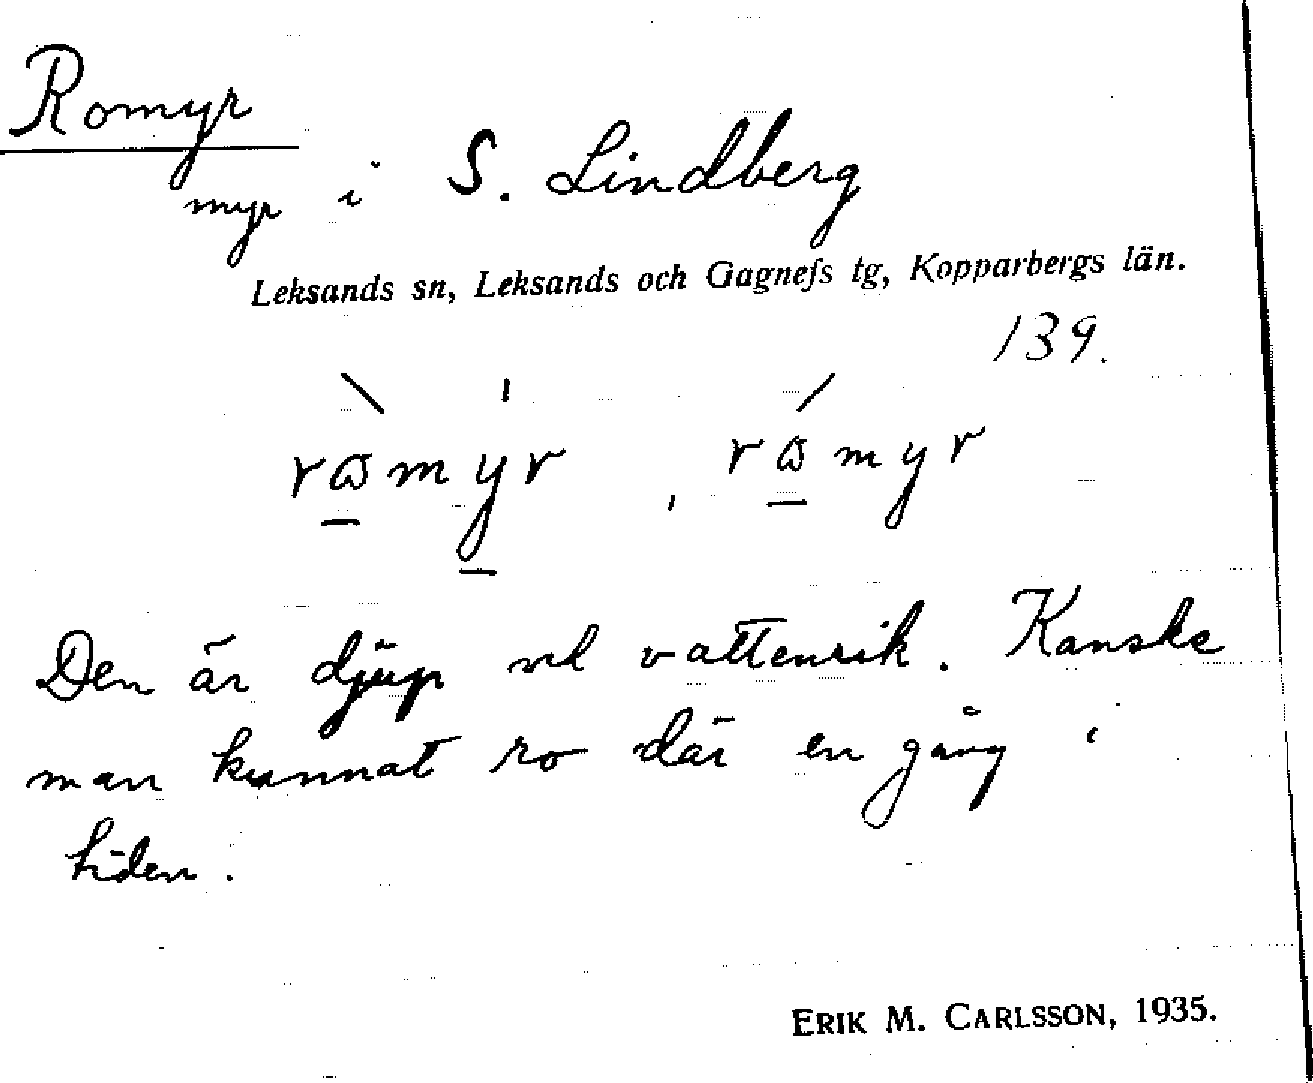 Romyr
myr i S. Lindberg
Leksands sn, Leksands och Gagnefs tg, Kopparbergs län.
139.
Den är djup vattenrik. Kanske
man kunnat ro där en gång i
tiden.
ERIK M. CARLSSON, 1935.